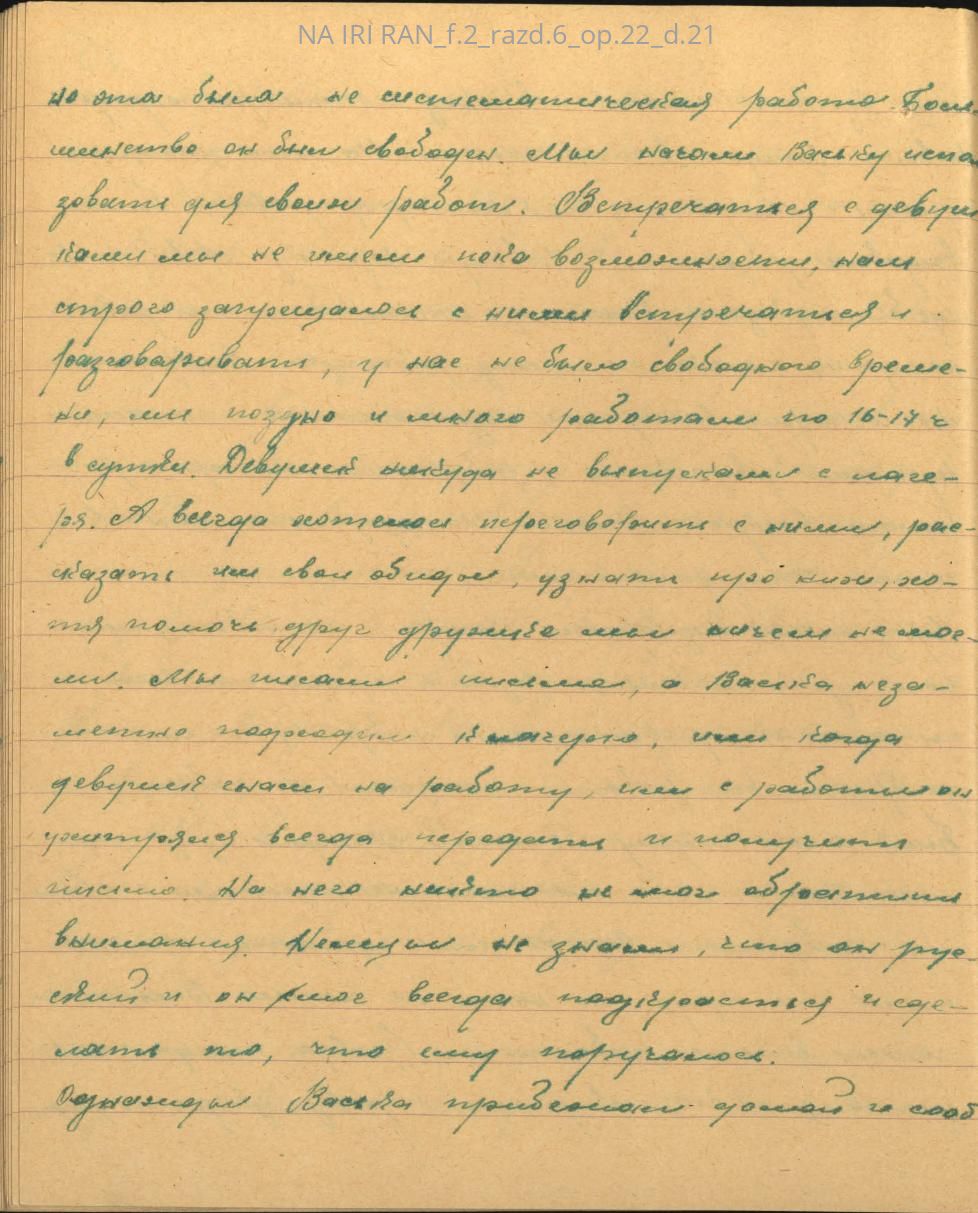 NA IRI RAN_f.2_razd.6_op.22_d.21
но эта была не систематическая работа. Боль
шинство он был свободен. Мы начали Ваську испо
зовать для своих работ. Встречаться с девуш
ками мы не имели пока возможности, нам
строго запрещалось с ними встречаться и
разговаривать, у нас не было свободного време-
ни, мы поздно и много работали по 16-17 ч
в сутки. Девушек никуда не выпускали с лаге-
ря. А всегда хотелось переговорить с ними, рас-
сказать им свои обиды, узнать про них, хо-
тя помочь друг дружке мы ничем не мог-
ли. Мы писали письма, а Васька неза-
метно подходил к лагерю, или когда
девушек гнали на работу, или с работы он
ухитрялся всегда передать и получить
письмо На него никто не мог обратить
внимания. Немцы не знали, что он рус-
ский и он смог всегда подкрасться и сде-
лать то, что ему поручалось.
Однажды Васька прибежал домой и сооб